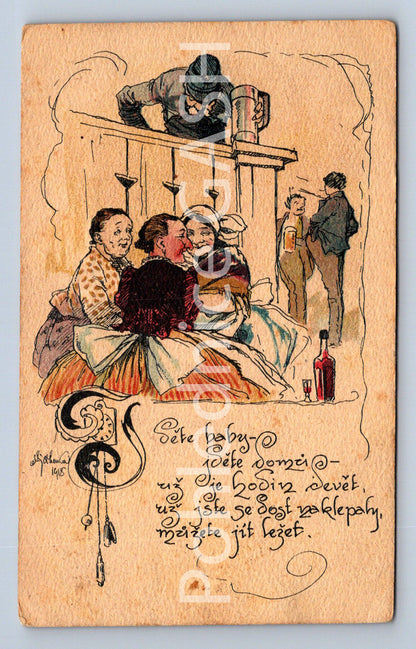 Jděte baby –
jděte domů –
už je hodin devět,
už jste se dost naklepaly,
můžete jít ležet.
1915
PohledniceGASH